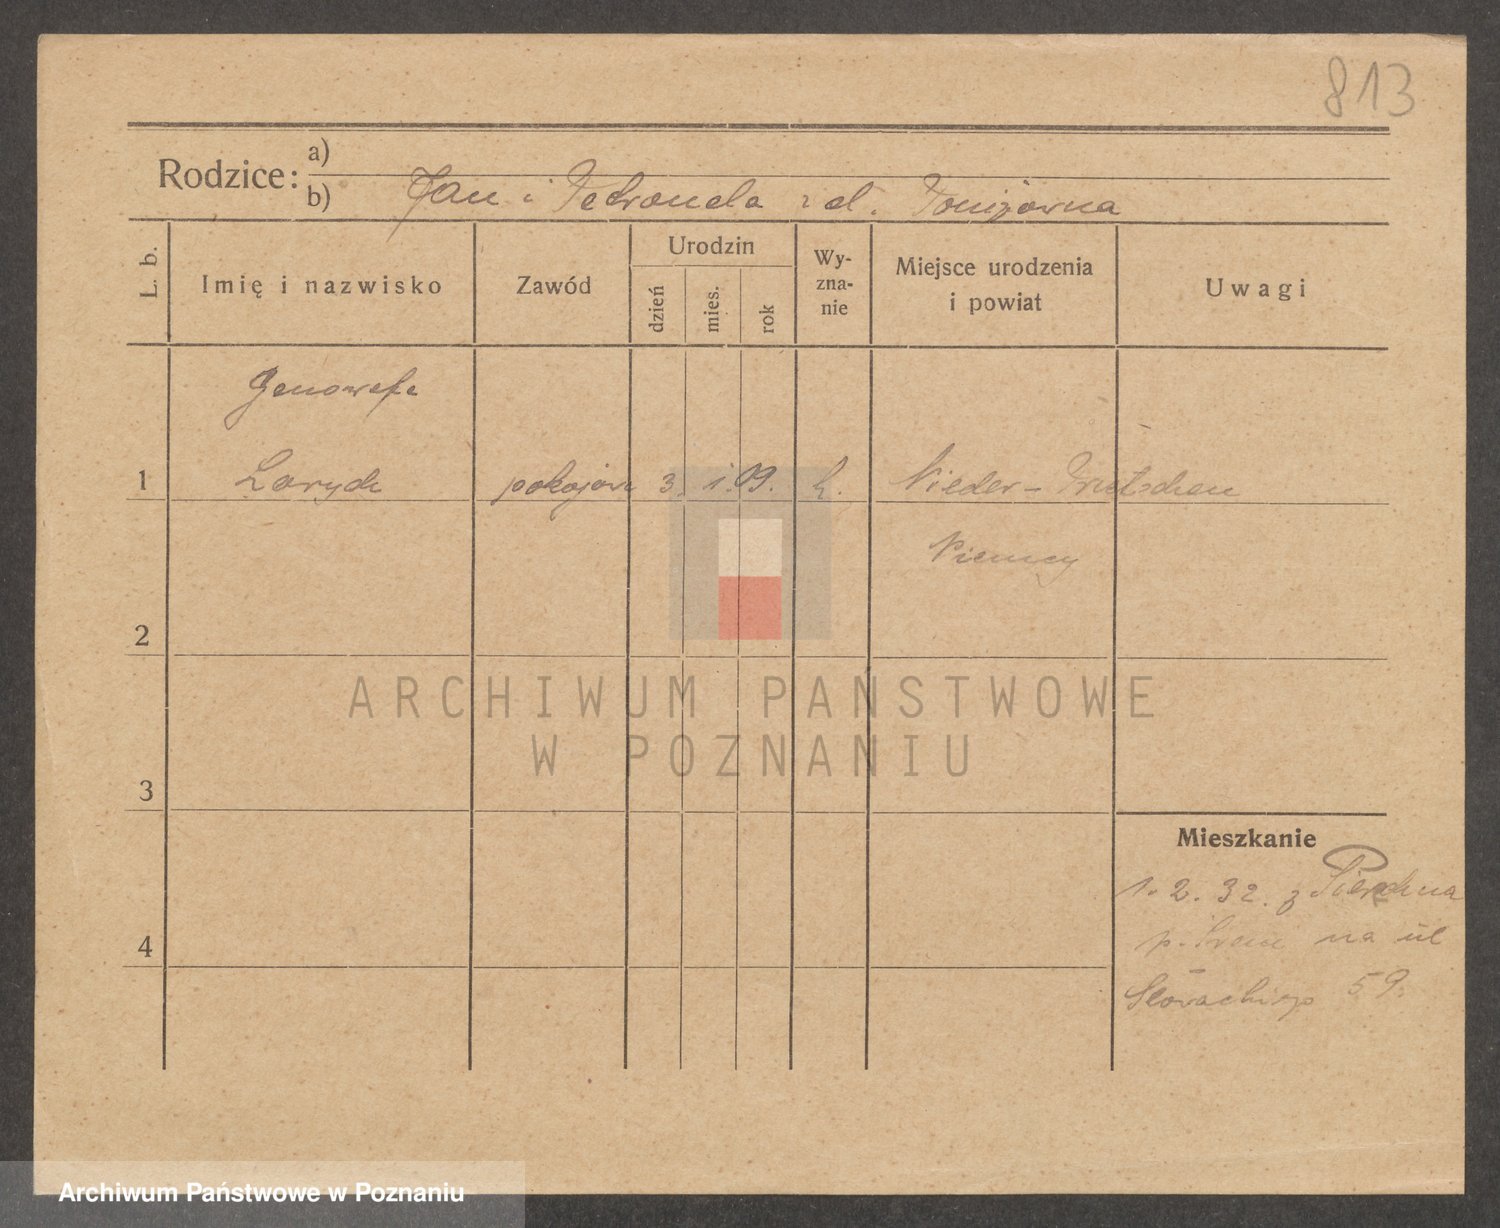 813
Rodzice: a)
b) Jan i Petronela z d.
L. b.
Imię i nazwisko
Zawód
Urodzin
dzień
mies.
rok
Wy-
zna-
nie
Miejsce urodzenia
i powiat
Uwagi
Genowefa
1 Laryck pokojowa 3. 1. 09. k. Nieder-
Niemcy
2
3
4
Mieszkanie
1. 2. 32. z
na ul
Słowackiego 59.
ARCHIWUM PAŃSTWOWE
W POZNANIU
Archiwum Państwowe w Poznaniu